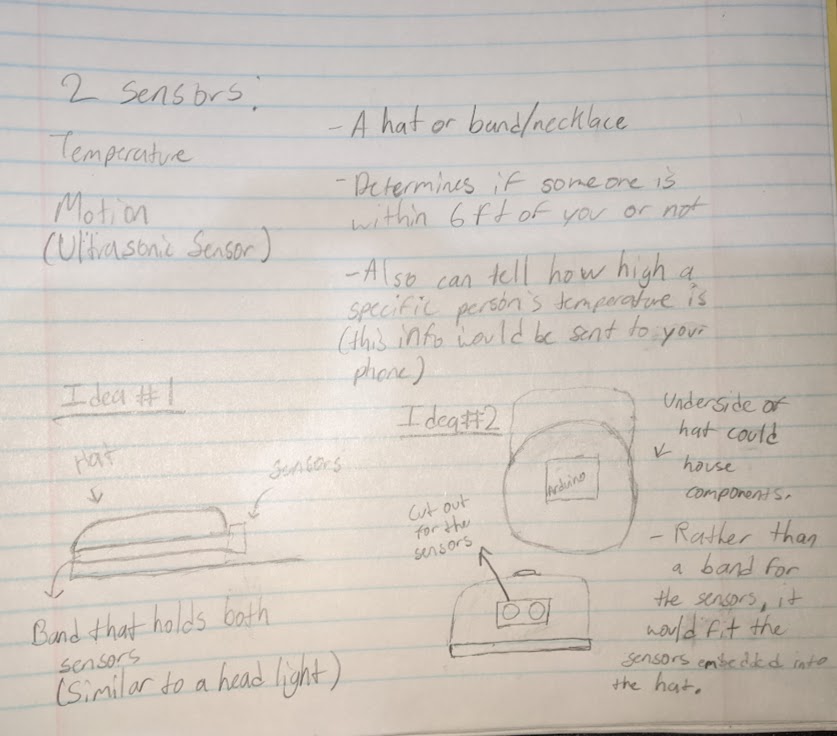 2 Sensors:
Temperature
Motion
(Ultrasonic Sensor)
- A hat or band/necklace
- Determines if someone is
within 6ft of you or not
- Also can tell how high a
specific person's temperature is
(this info would be sent to your
phone)
Idea #1
Hat
Sensors
Band that holds both
sensors
(Similar to a head light)
Idea #2
Arduino
Cut out
for the
sensors
Underside of
hat could
house
components.
- Rather than
a band for
the sensors, it
would fit the
sensors embedded into
the hat.